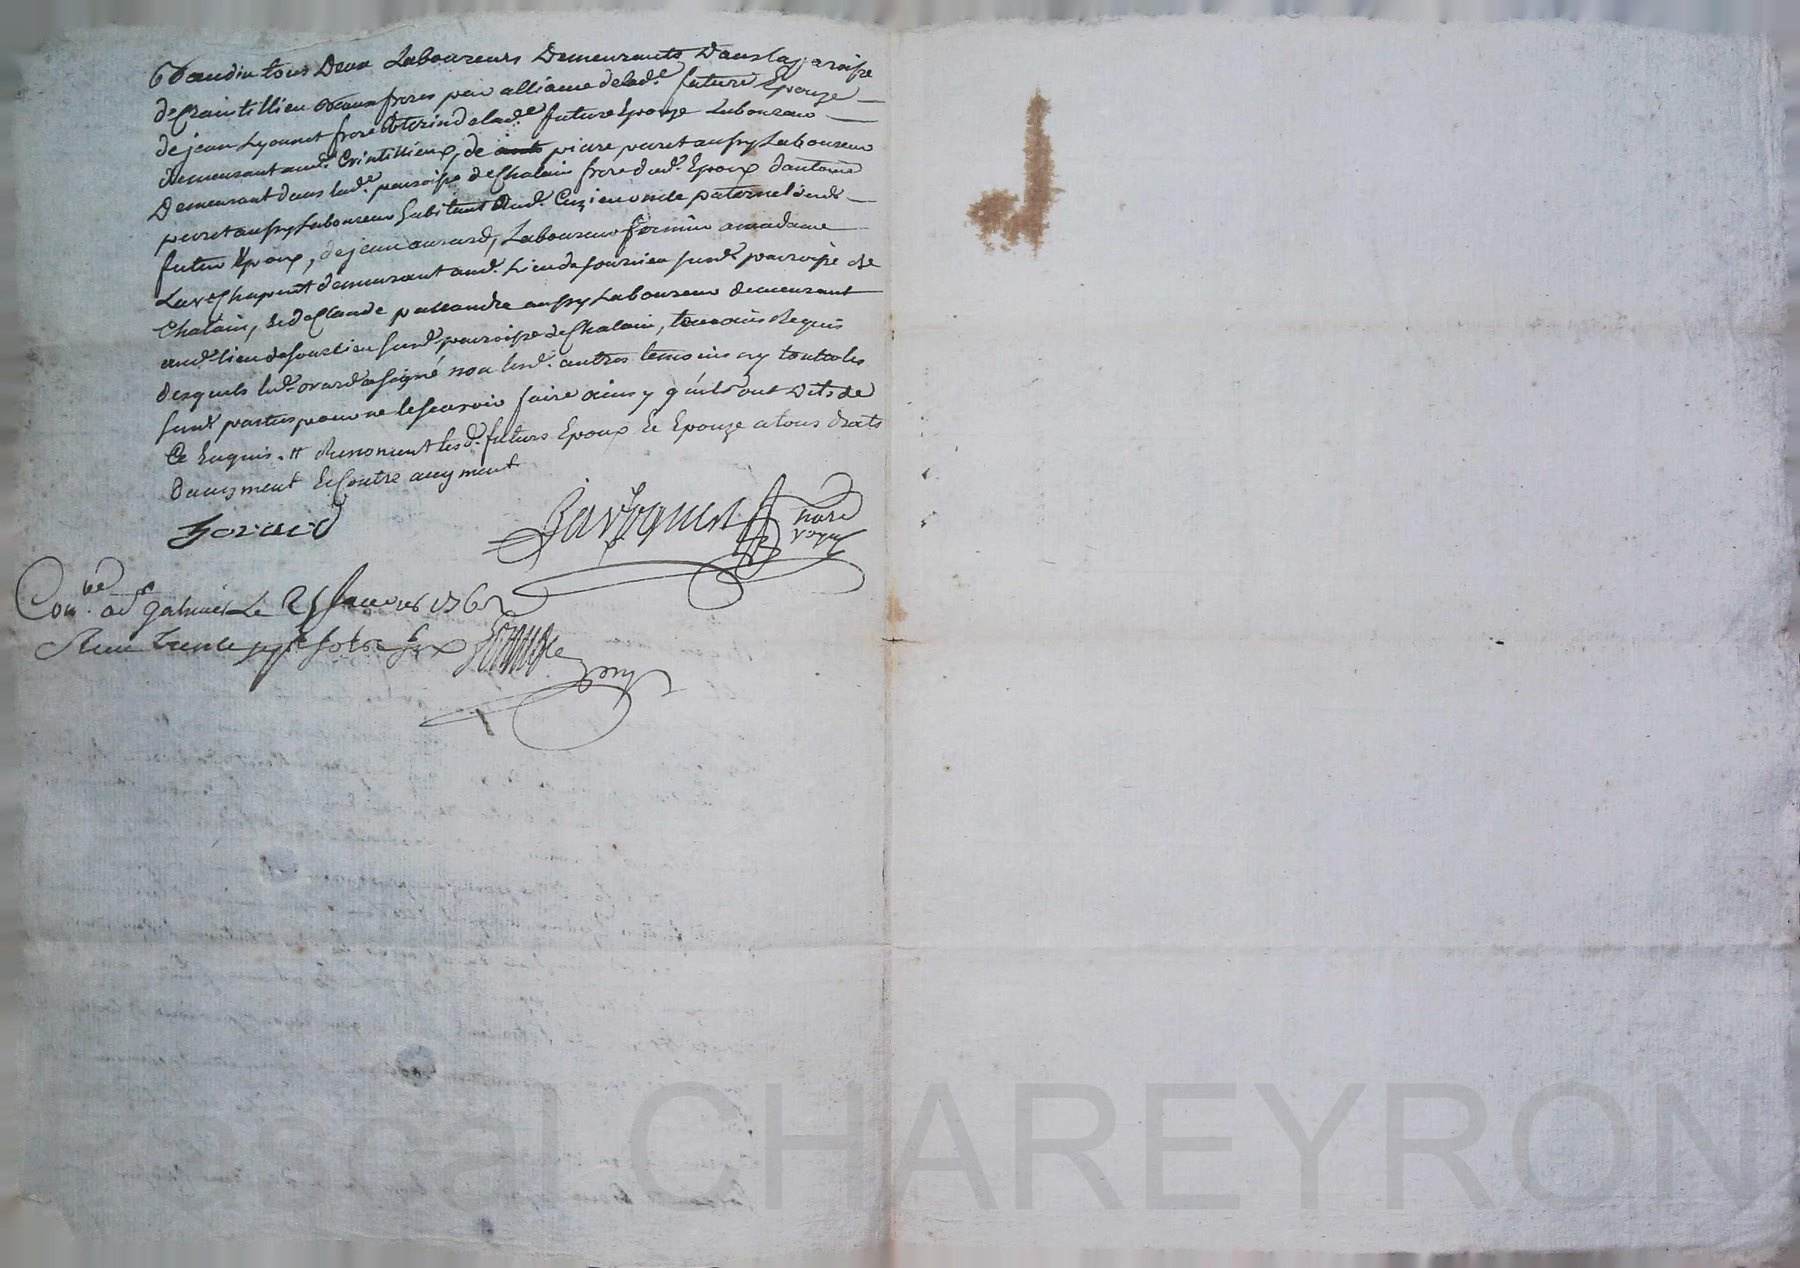 Gaudin tous Deux Laboureurs Demeurants Dans la paroisse
de Craintillieu beaux freres par alliance de lad.e future Epouze
de jean Lyonnet frere Uterin de lad.e future Epouze Laboureur
demeurant aud.t Crintillieux, de piere peret aussy Laboureur
Demeurant dans lad.e paroisse de Chalain frere dud.t Epoux d'antoine
peret aussy Laboureur habitant aud.t Cuzieu oncle paternel dud.t
futur Epoux, de jean Laboureur fermier a madame
La v.e Chapuit demeurant aud.t Lieu de fontieu sud.te paroisse de
Chalain, & de Claude aussy Laboureur demeurant
aud.t lieu de sud.te paroisse de Chalain, temoins Requis
desquels led.t a signé non lesd. autres temoins ny toutes les
sud.tes parties pour ne le scavoir faire ainsy qu'ils ont Dits de
Ce Enquis. # Renoncent lesd. futurs Epoux & Epouze a tous droits
d'augment & Contre augment
nore
Royal
Con.lé a S.t galmier Le
Reçu trente sept sols six
Pascal CHAREYRON